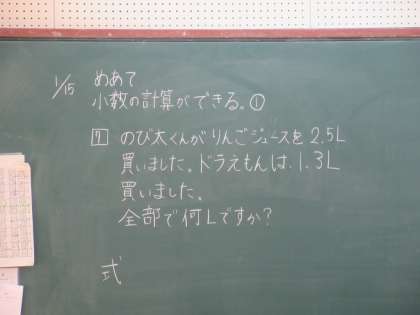 1/15 めあて
小数の計算ができる。①
問 のび太くんがりんごジュースを2.5L
買いました。ドラえもんは、1.3L
買いました。
全部で何Lですか?
式